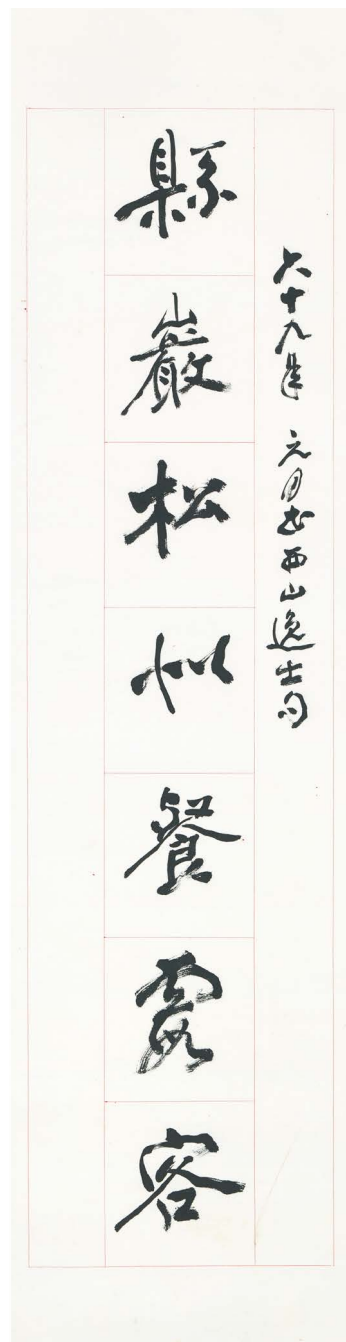 六十九年 元月書西山逸士句
縣巖松似餐霞客